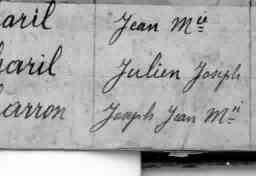 aril Jean M.ie
baril Julien Joseph
arron Joseph Jean M.ie